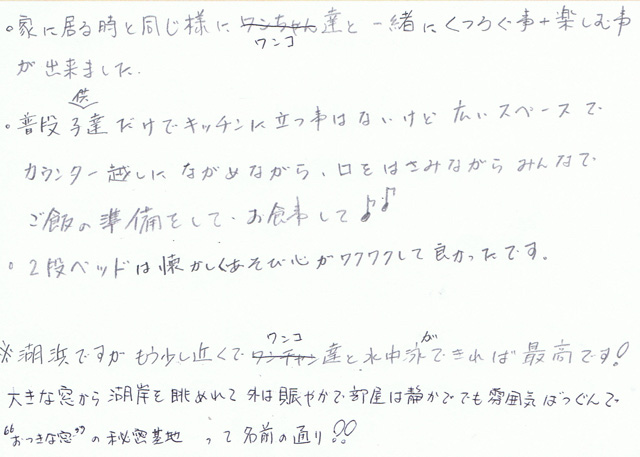 。家に居る時と同じ様にワンコ達と一緒にくつろぐ事+楽しむ事
が出来ました.
。普段子供達だけでキッチンに立つ事はないけど広いスペースで
カウンター越しにながめながら、口をはさみながらみんなで
ご飯の準備をして、お食事して♪♪
。2段ベッドは懐かしくあそび心がワクワクして良かったです。
※湖浜ですがもう少し近くでワンコ達と水中泳ができれば最高です!
大きな窓から湖岸を眺めれて外は賑やかで部屋は静かででも雰囲気ばつぐんで
"おっきな窓"の秘密基地って名前の通り!!